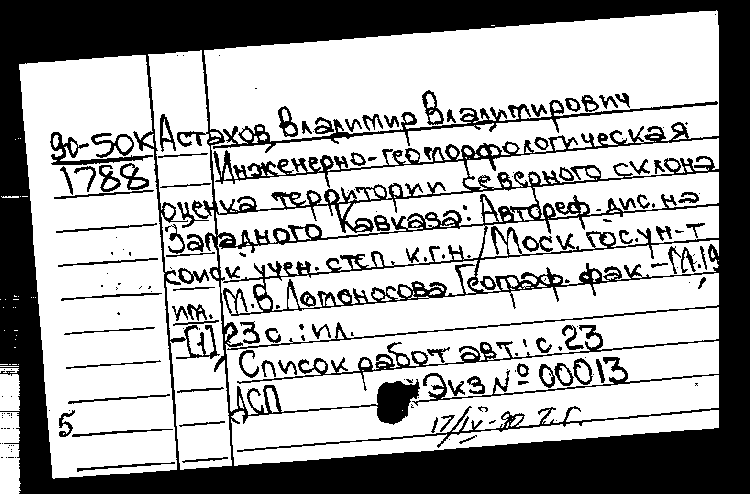 90-50К Астахов, Владимир Владимирович
1788 Инженерно-геоморфологическая
оценка территории северного склона
Западного Кавказа: Автореф. дис. на
соиск. учен. степ. к.г.н. / Моск. гос. ун-т
им. М.В. Ломоносова. Географ. фак. - М., 19
-[1], 23 с. : ил.
Список работ авт.: с. 23
ДСП Экз № 00013
5
17/IV-90 г.